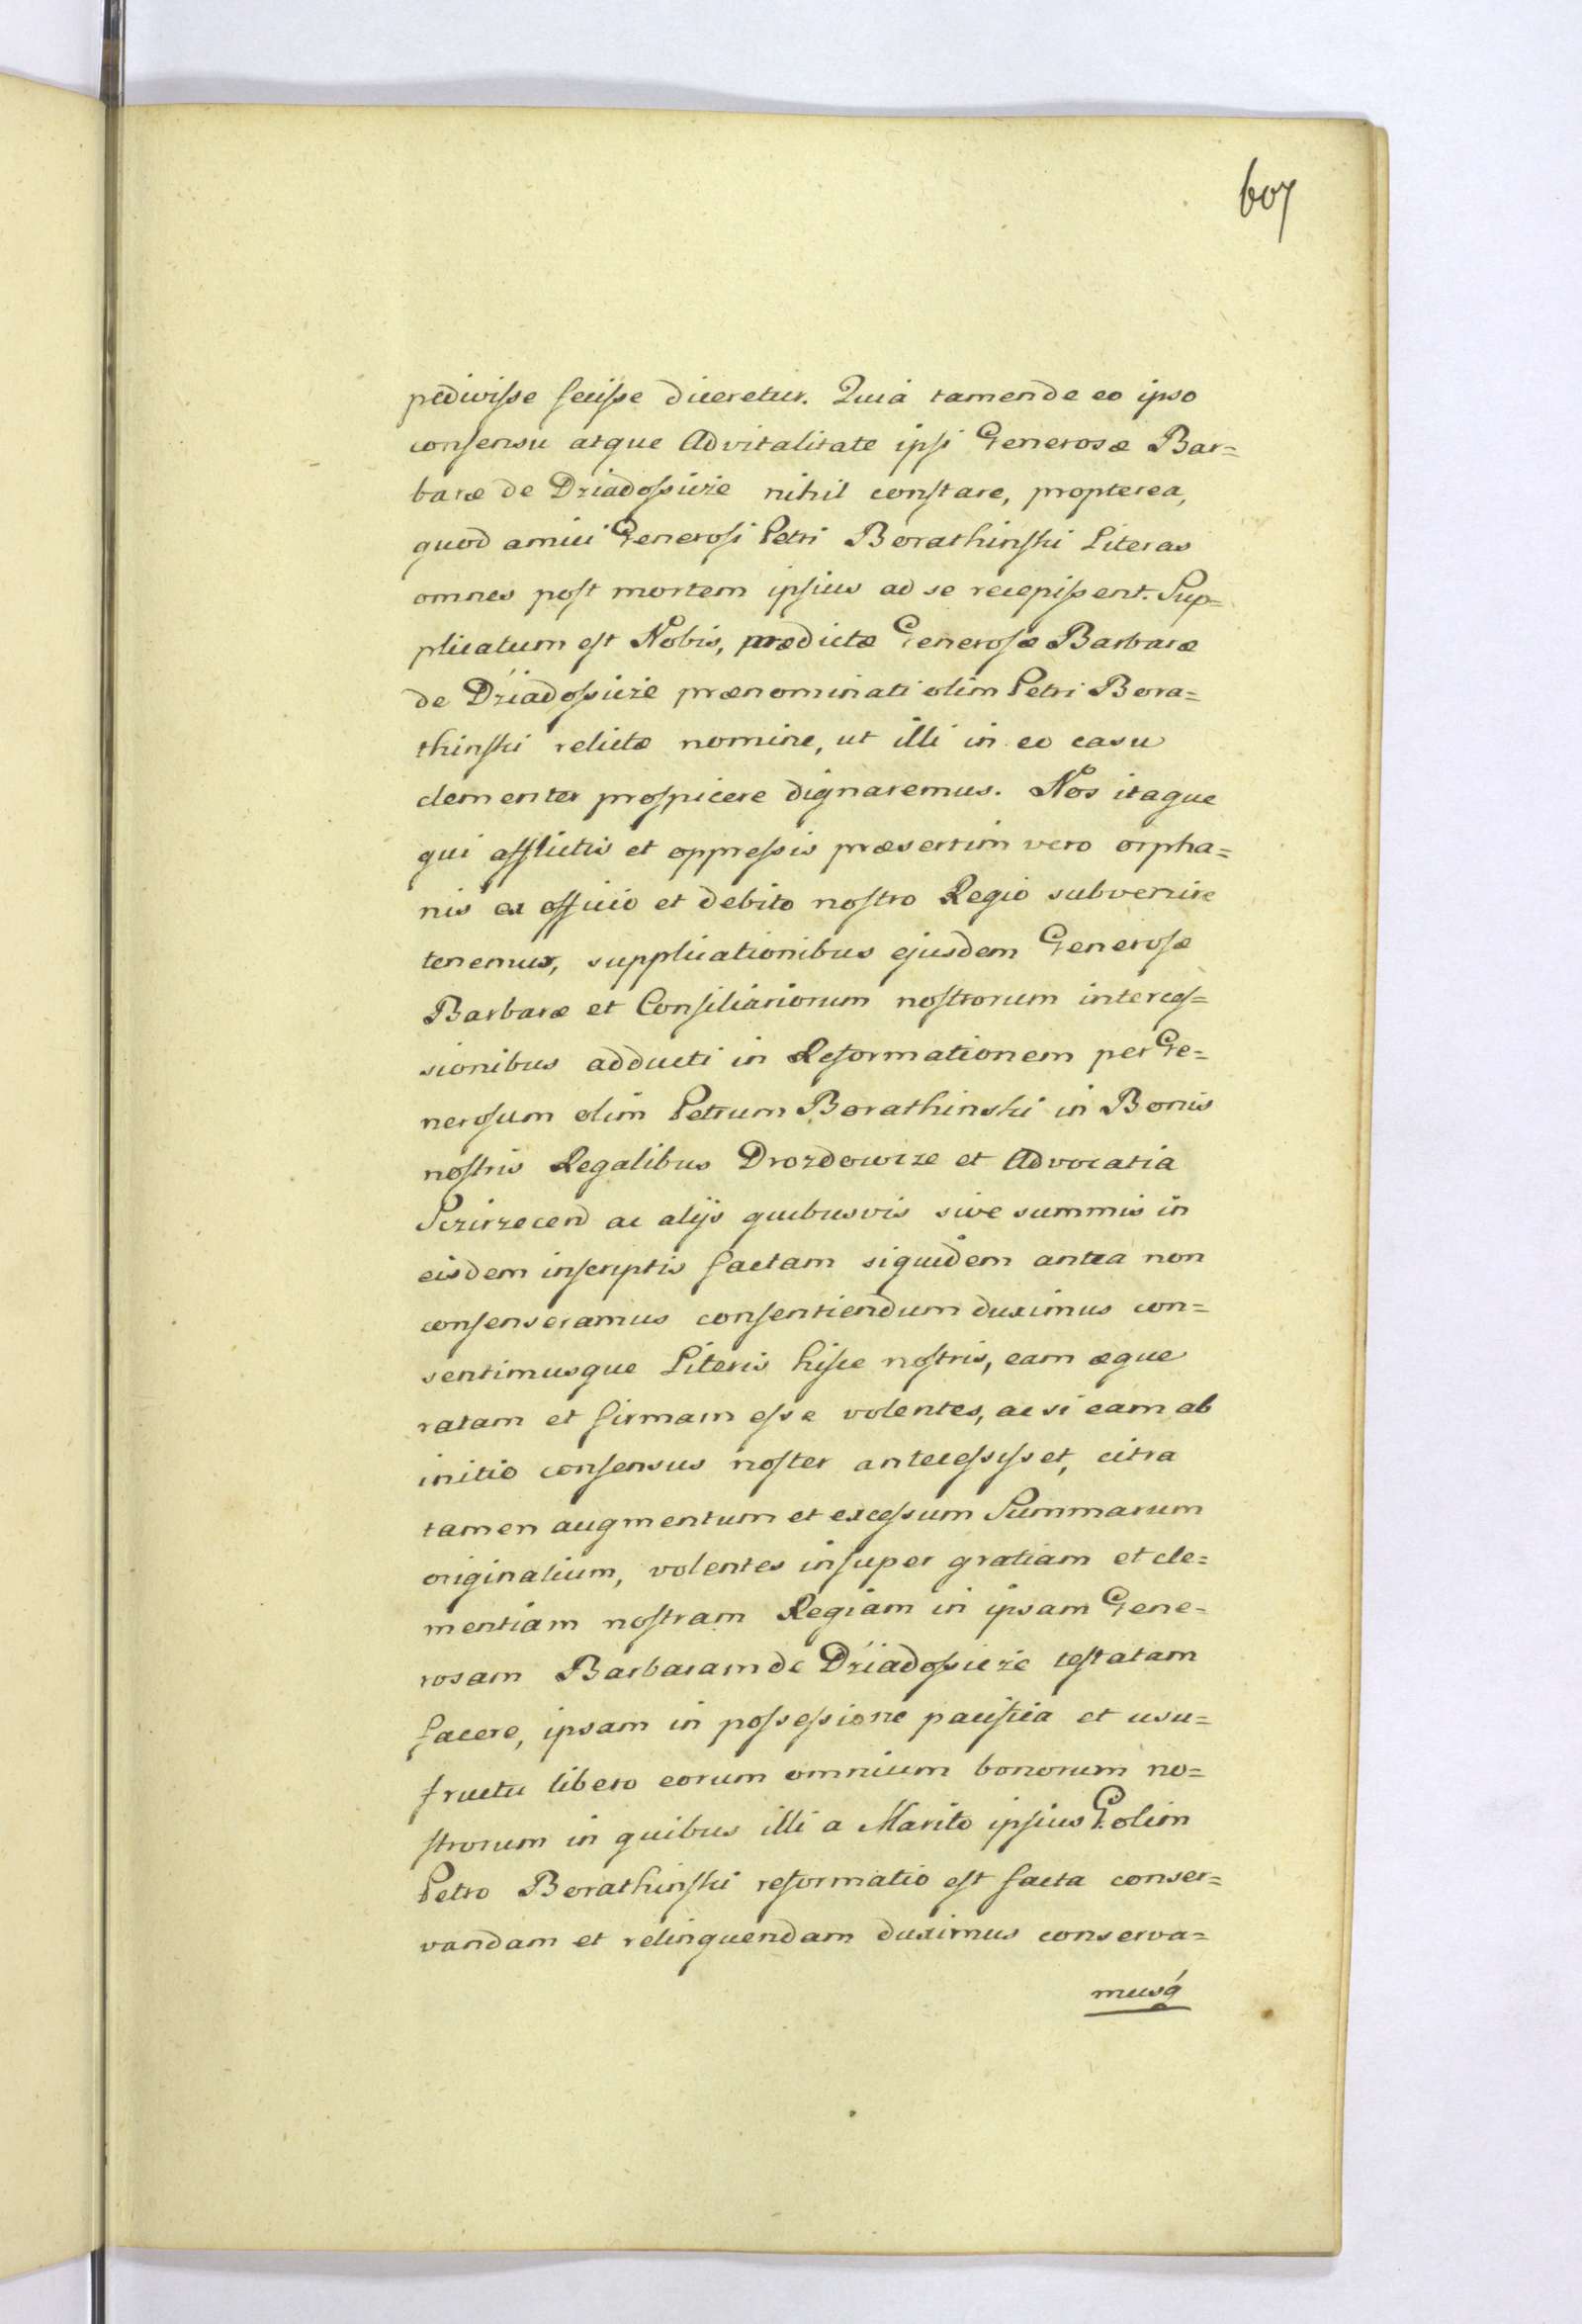 607
pedivisse fecisse diceretur. Quia tamen de eo ipso
consensu atque Advitalitate ipsi Generosæ Bar=
baræ de Dziadossicze nihil constare, propterea,
quod amici Generosi Petri Borathinski Literas
omnes post mortem ipsius ad se recepissent. Sup=
plicatum est Nobis, prædictæ Generosæ Barbaræ
de Dziadossicze prænominati olim Petri Bora=
thinski relictæ nomine, ut illi in eo casu
clementer prospicere dignaremus. Nos itaque
qui afflictis et oppressis præsertim vero orpha=
nis ex officio et debito nostro Regio subvenire
tenemur, supplicationibus ejusdem Generosæ
Barbaræ et Consiliariorum nostrorum interces=
sionibus adducti in Reformationem per Ge=
nerosum olim Petrum Borathinski in Bonis
nostris Regalibus Drozdowicze et Advocatia
Pczirzecend ac alijs quibusvis sive summis in
eisdem inscriptis factam siquidem antea non
consenseramus consentiendum duximus con=
sentimusque Literis hisce nostris, eam æque
ratam et firmam esse volentes, ac si eam ab
initio consensus noster antecessisset, citra
tamen augmentum et excessum Summarum
originalium, volentes insuper gratiam et cle=
mentiam nostram Regiam in ipsam Gene=
rosam Barbaram de Dziadossicze testatam
facere, ipsam in possessione pacifica et usu=
fructu libero eorum omnium bonorum no=
strorum in quibus illi a Marito ipsius G. olim
Petro Borathinski reformatio est facta conser=
vandam et relinquendam duximus conserva=
musq́